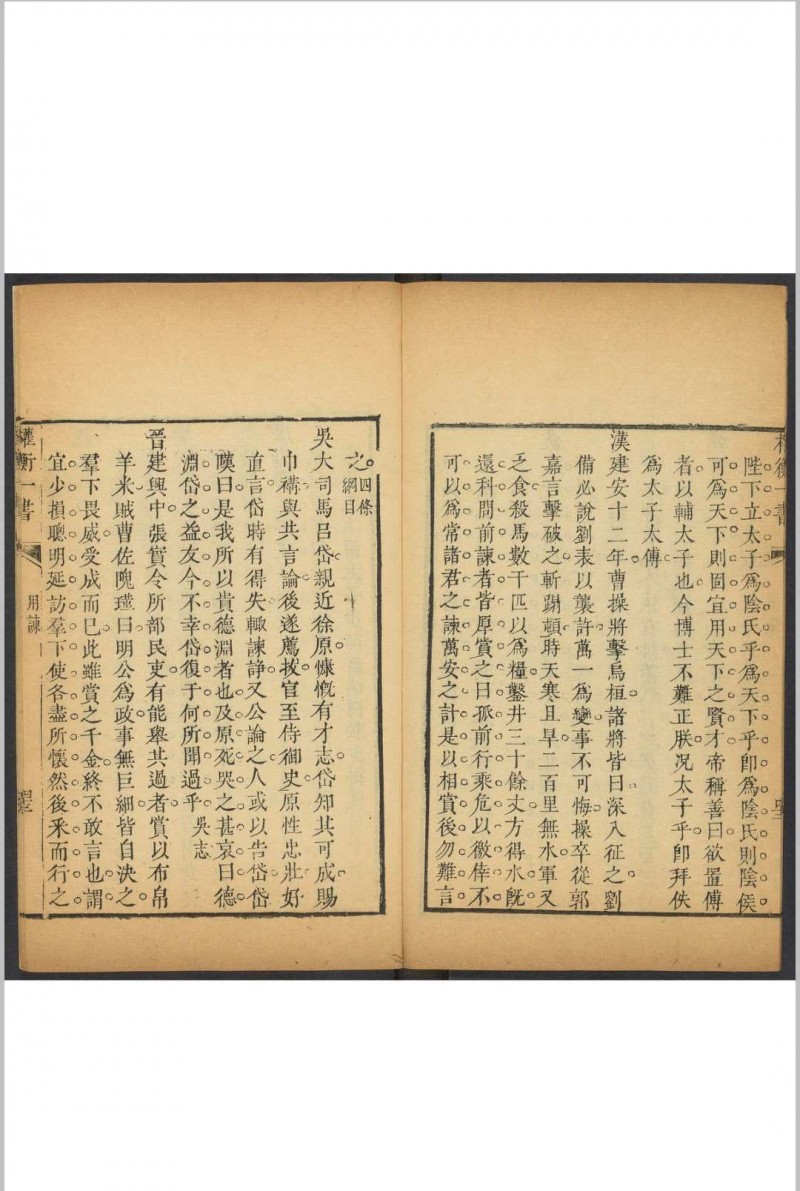 權衡一書
陛下立太子爲陰氏乎爲天下乎卽爲陰氏則陰侯
可爲天下則固宜用天下之賢才帝稱善曰欲置傅
者以輔太子也今博士不難正朕况太子乎卽拜佚
爲太子太傅
漢建安十二年曹操將擊烏桓諸將皆曰深入征之劉
備必說劉表以襲許萬一爲變事不可悔操卒從郭
嘉言擊破之斬蹋頓時天寒且旱二百里無水軍又
乏食殺馬數千匹以爲糧鑿井三十餘丈方得水旣
還科問前諫者皆厚賞之曰孤前行乘危以徼倖不
可以爲常諸君之諫萬安之計是以相賞後勿難言
之四條
綱目
吳大司馬呂岱親近徐原慷慨有才志岱知其可成賜
巾褠與共言論後遂薦拔官至侍御史原性忠壯好
直言岱時有得失輙諫諍又公論之人或以告岱岱
嘆曰是我所以貴德淵者也及原死哭之甚哀曰德
淵岱之益友今不幸岱復于何所聞過乎吳志
晉建興中張寔令所部民吏有能舉其過者賞以布帛
羊米賊曹佐隗瑾曰明公爲政事無巨細皆自決之
羣下畏威受成而已此雖賞之千金終不敢言也謂
宜少損聰明延訪羣下使各盡所懷然後采而行之
權衡一書
用諫